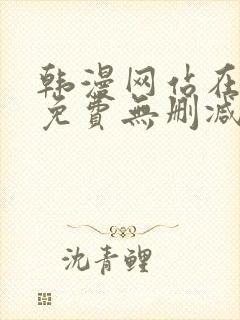 韩漫网站在
免費無删减
沈青鲤